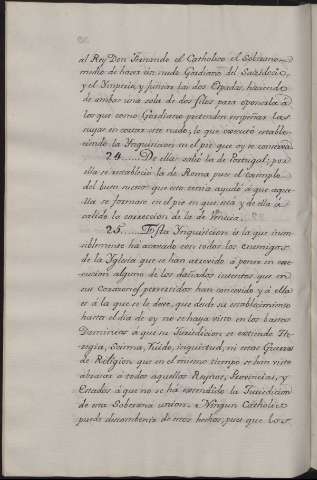 al Rey Don Fernando el Catholico el Soberano
medio de hacer un nudo Gordiano del Sacerdocio,
y el Imperio, y juntar las dos Espadas, haciendo
de ambas una sola de dos filos para oponerla á
los que como Gordiano pretenden empeñar las
suyas en cortar este nudo, lo que executó estable-
ciendo la Inquisicion en el pie que oy se conserva
24..... De ella salió la de Portugal; por
ella se estableció la de Roma pues el exemplo
del buen suceso que esta tenia ayudó á que aque-
lla se formase en el pie en que está y de ella á
salido la correccion de la de Venecia.
25..... Esta Inquisicion es la que inven-
siblemente ha acavado con todos los enemigos
de la Iglesia que se han atrevido á poner en exe-
cucion alguno de los dañados intentos que en
sus Corazones pervertidos han concevido y á ella
es á la que se le deve, que desde su establecimiento
hasta el dia de oy no se haya visto en los bastos
Dominios á que su Jurisdicion se extiende He-
regia, Scisma, Ruido, inquietud, ni estas Guerras
de Religion que en el mismo tiempo se han visto
abrasar á todos aquellos Reynos, Provincias, y
Estados á que no se há extendido la Jurisdicion
de esta Soberana union. Ningun Catholico
puede discombenir de estos hechos, pues que los